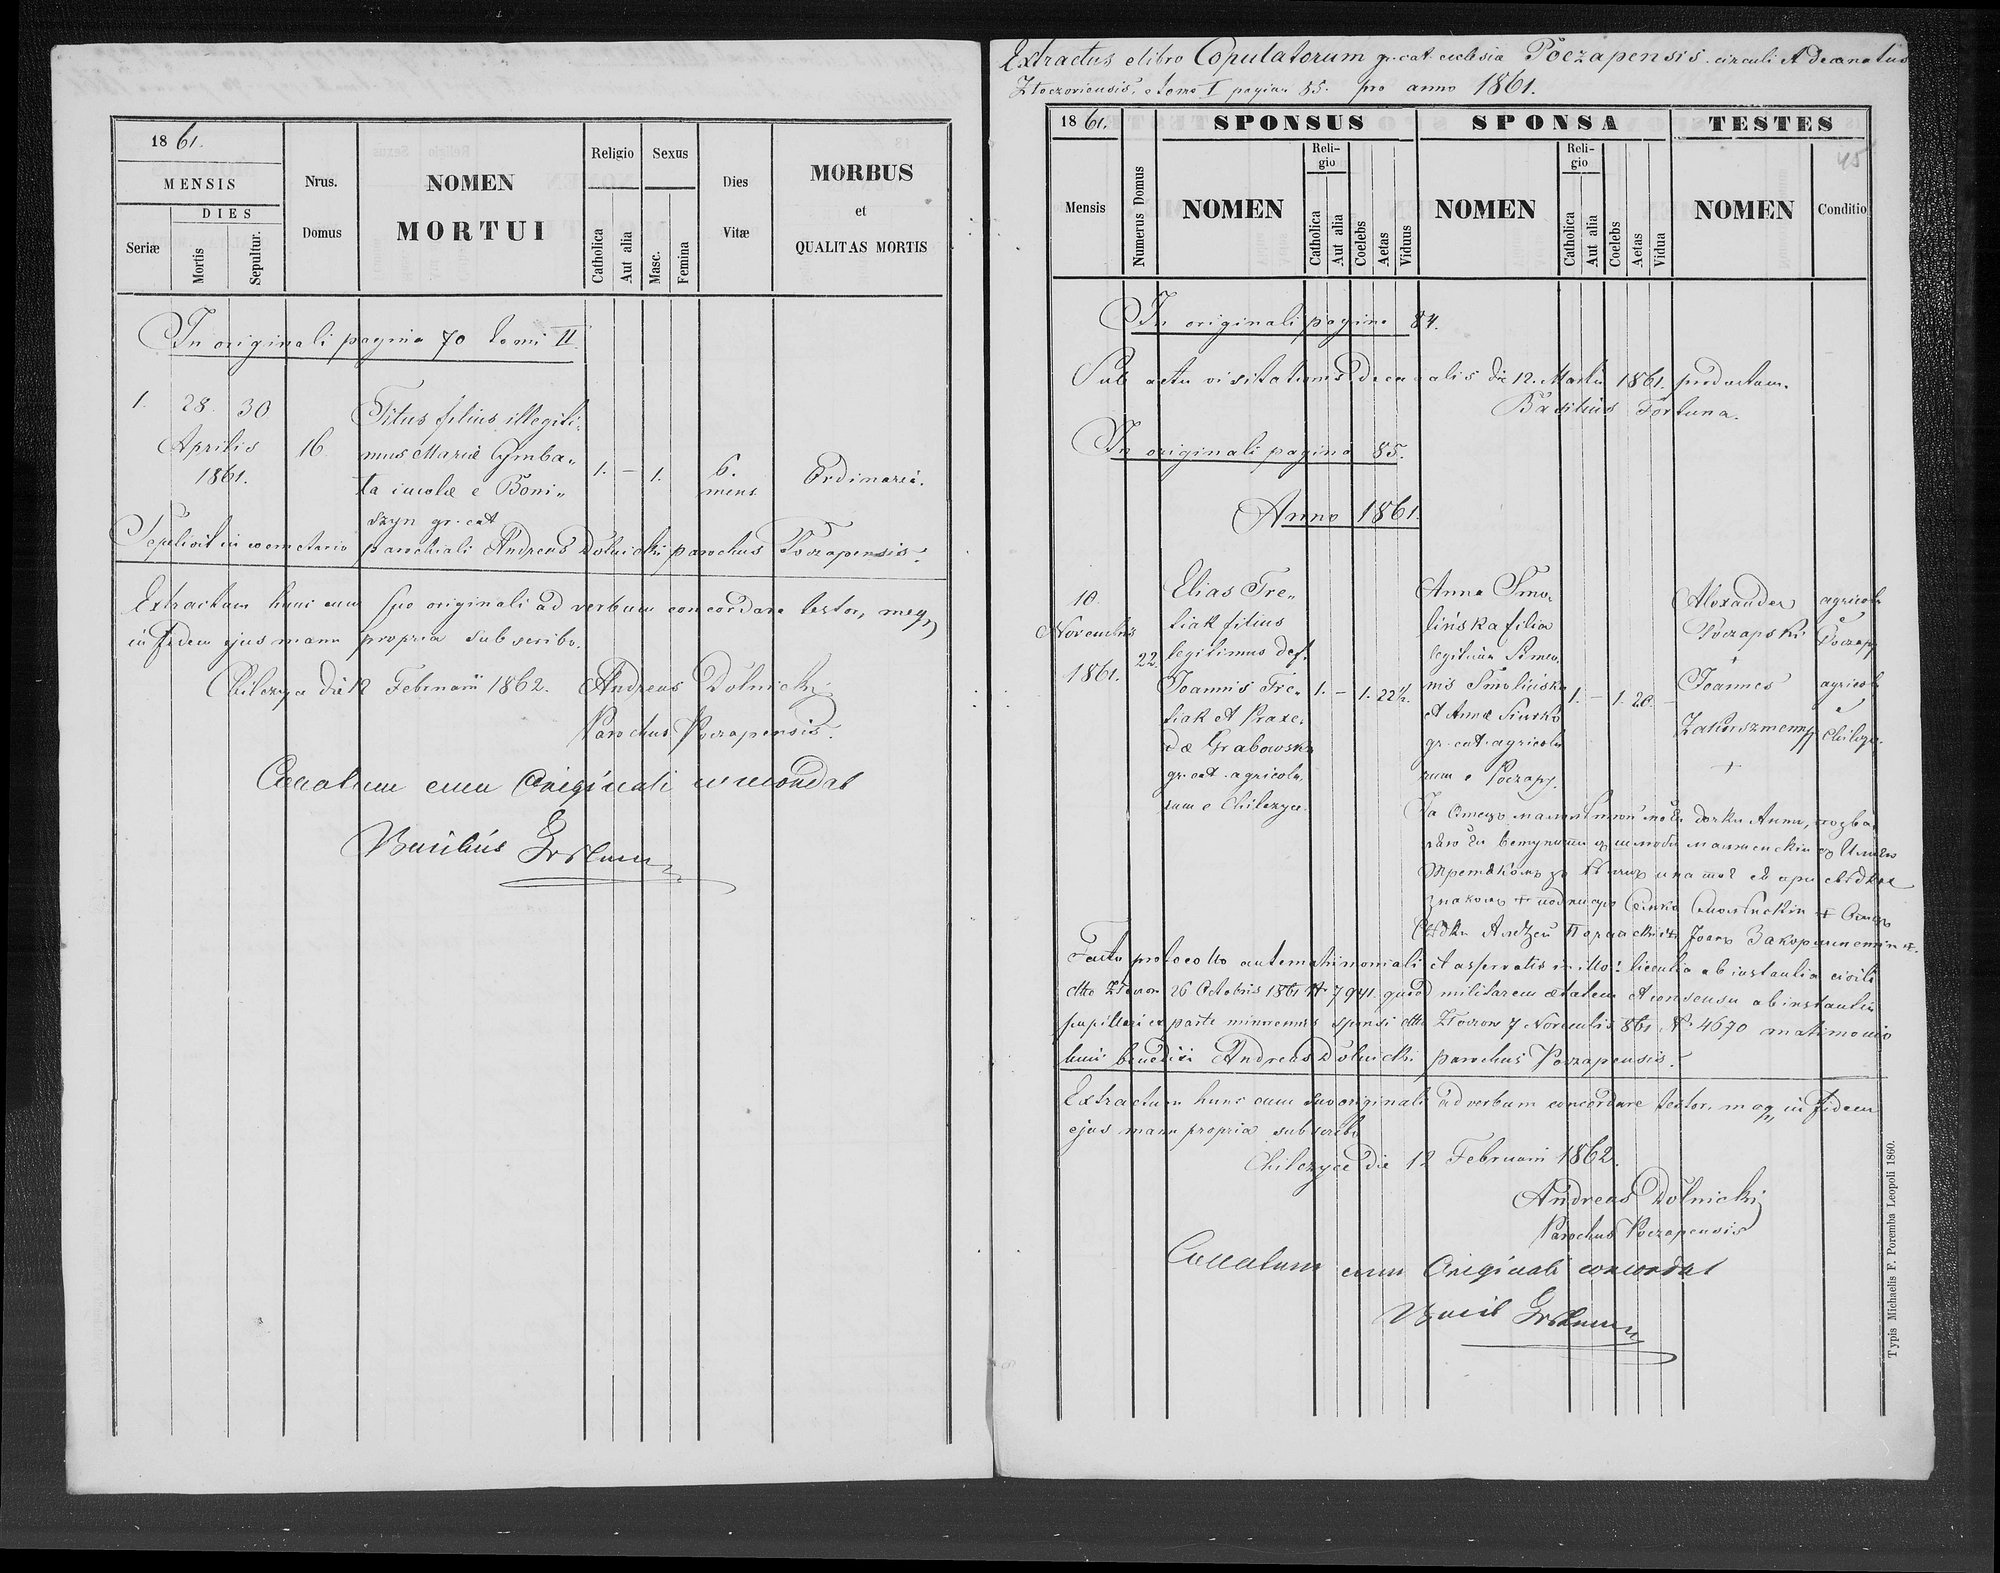 1861.
MENSIS
DIES
Seriæ
Mortis
Sepultur.
Nrus.
Domus
NOMEN
MORTUI
Religio
Catholica
Aut alia
Sexus
Masc.
Femina
Dies
Vitæ
MORBUS
et
QUALITAS MORTIS
In originali pagina 70 tomi II
1. 28. 30 Titus filius illegiti-
Aprilis 16 mus Mariæ Cymba-
1861. ta incolæ e Boni- 1. – 1. 6. mens. Ordinaria.
szyn gr. cat
Sepelivit in coemeterio parochiali Andreas Dolnicki parochus Poczapensis.
Extractum hunc cum suo originali ad verbum concordare testor, meq,
in fidem ejus manu propria subscribo.
Chilczyce die 12 Februarii 1862. Andreas Dolnicki
Parochus Poczapensis.
Collatum cum Originali concordat
Basilius Fortuna
Extractus e libro Copulatorum gr. cat. ecclesia Poczapensis circuli et Decanatus
Złoczoviensis, e tomo I pagina 85. pro anno 1861.
45
1861.
Mensis
Numerus Domus
SPONSUS
NOMEN
Reli-
gio
Catholica
Aut alia
Coelebs
Aetas
Viduus
SPONSA
NOMEN
Reli-
gio
Catholica
Aut alia
Coelebs
Aetas
Vidua
TESTES
NOMEN
Conditio
In originali pagina 84.
Sub actu visitationis decanalis die 12. Martii 1861. productum.
Basilius Fortuna.
In originali pagina 85.
Anno 1861.
10.
Novembris
1861.
22.
Elias Tre-
tiak filius
legitimus def.
Joannis Tre-
tiak et Praxe-
dæ Grabowska
gr. cat. agricola-
rum e Chilczyce.
1. – 1. 22½.
Anna Smo-
lińska filia
legitima Simeo-
nis Smolińska
et Annæ Siurko
gr. cat. agricola-
rum e Poczapy.
1. – 1. 20. –
Alexander
Poczapski
Joannes
Zakorszmenny
+
agricola
e
Poczapy
agricola
e
Chilczyce.
Facto protocollo autematrimoniali et asservatis in illo: licentia ab instantia civili
dtto Złoczow 26 Octobris 1861 N 7941. quoad militarem ætatem et consensu ab instantia
pupillari ex parte minorennis sponsi dtto Złoczow 7 Novembris 861 N 4670 matrimonio
huic benedixi Andreas Dolnicki parochus Poczapensis.
Extractum hunc cum suo originali ad verbum concordare testor, meq, in fidem
ejus manu propria subscribo
Chilczyce die 12 Februarii 1862.
Andreas Dolnicki
Parochus Poczapensis
Collatum cum Originali concordat
Basil Fortuna
Typis Michaelis F. Poremba Leopoli 1860.